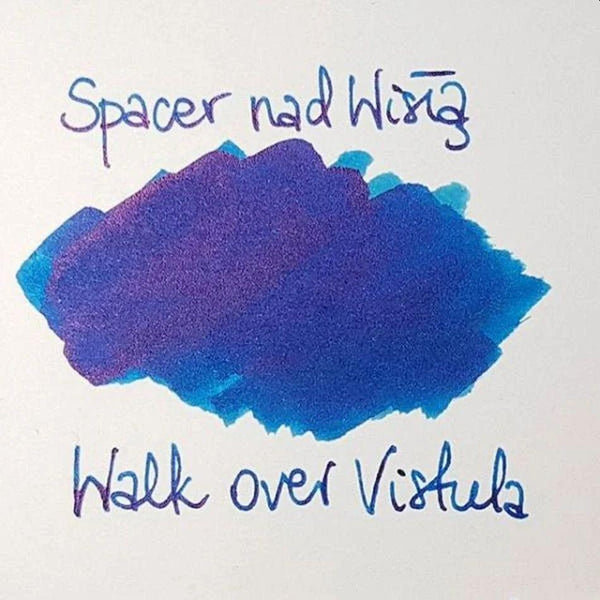 Spacer nad Wisłą
Walk over Vistula